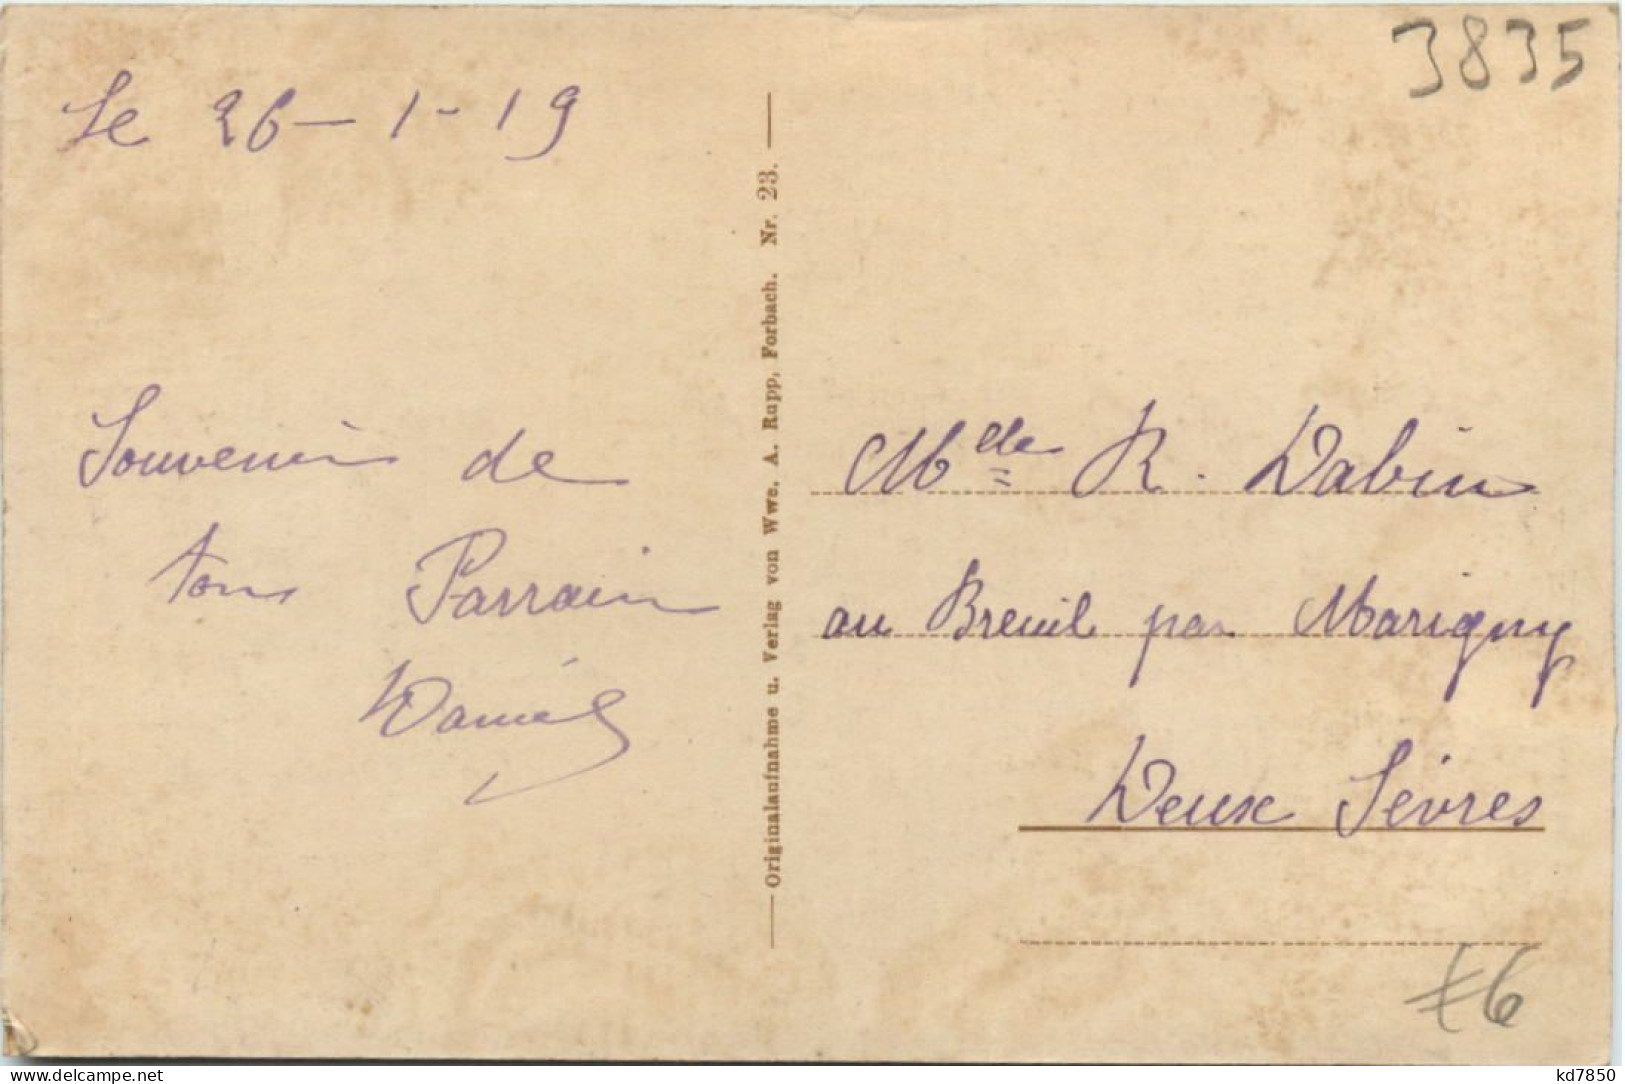 3835
Le 26-1-19
Souvenir de
ton Parrain
Daniel
Originalaufnahme u. Verlag von Wwe. A. Rupp, Forbach. Nr. 23.
Mde R. Dabin
au Breuil par Marigny
Deux Sèvres
6
kd7850